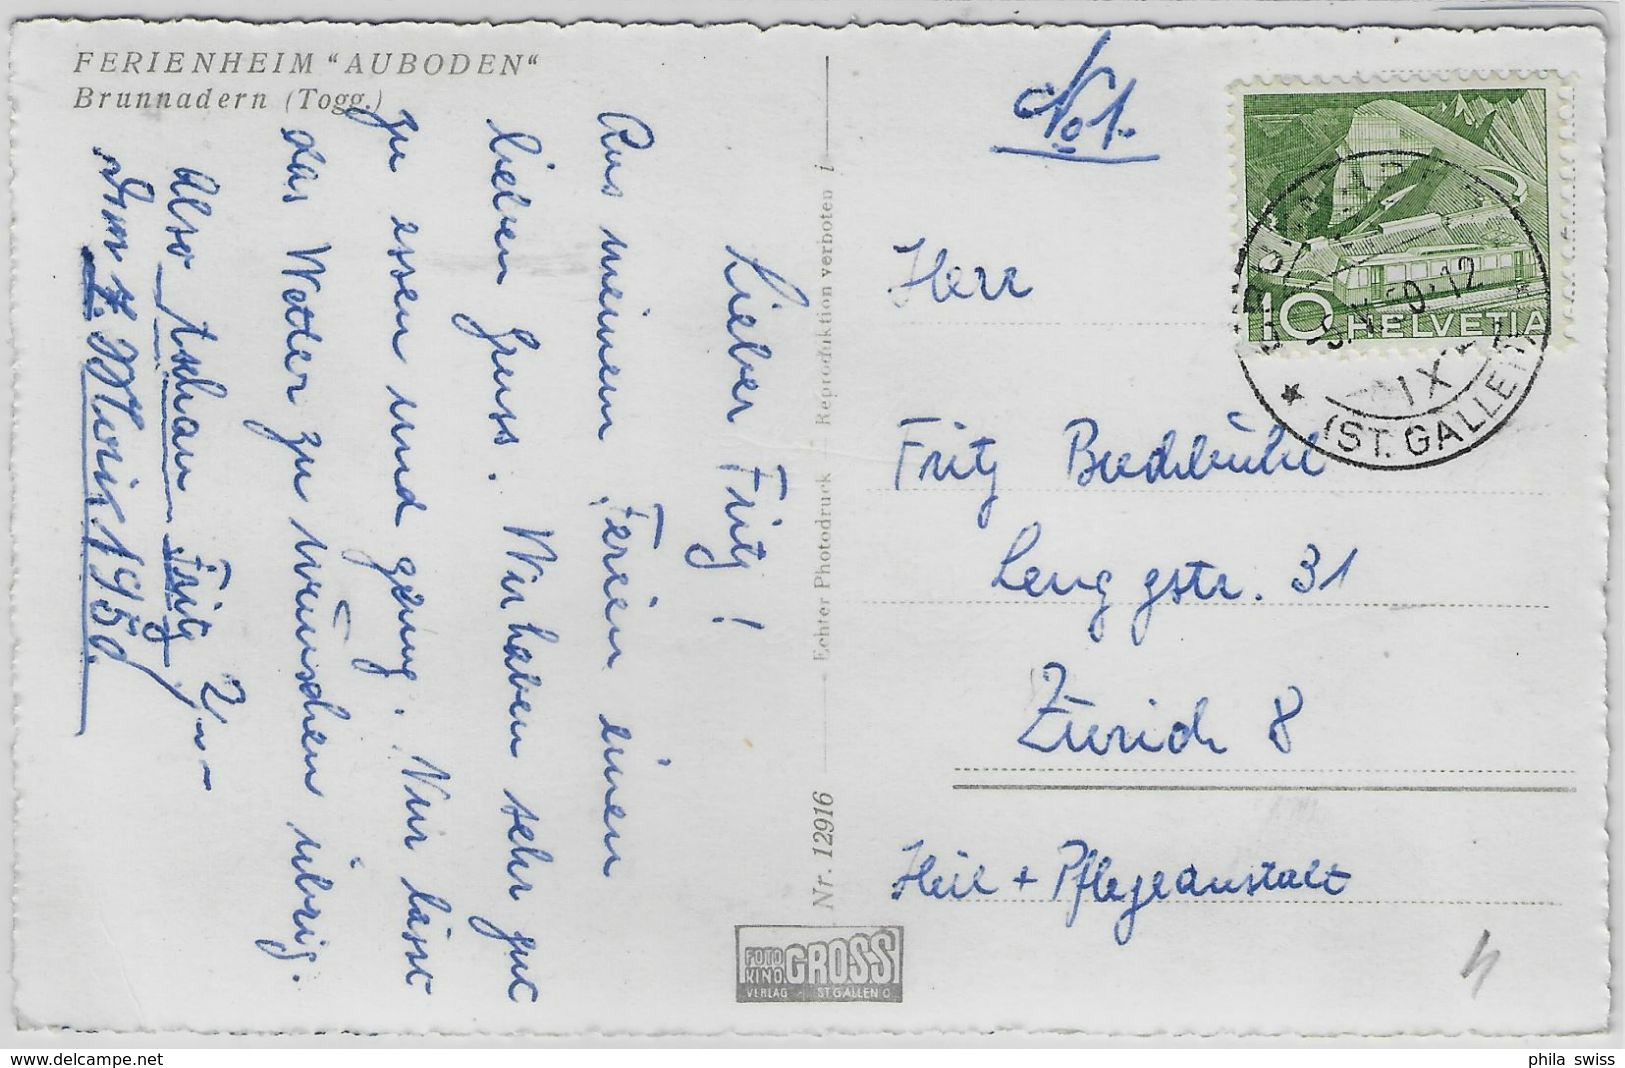 FERIENHEIM "AUBODEN"
Brunnadern (Togg.)
Lieber Fritz!
Aus meinen Ferien einen
lieben Gruss. Wir haben sehr gut
zu essen und genug. Nur lässt
das Wetter zu wünschen übrig.
Also tschau Fritz
1950.
Echter Photodruck - Reproduktion verboten
Nr. 12916
FOTO KINO GROSS
VERLAG ST GALLEN O
No 1.
HELVETIA
10
(ST. GALLEN)
IX
Herr
Fritz
Lenggstr. 31
Zürich 8
Heil + Pflegeanstalt
delcampe.net
phila swiss